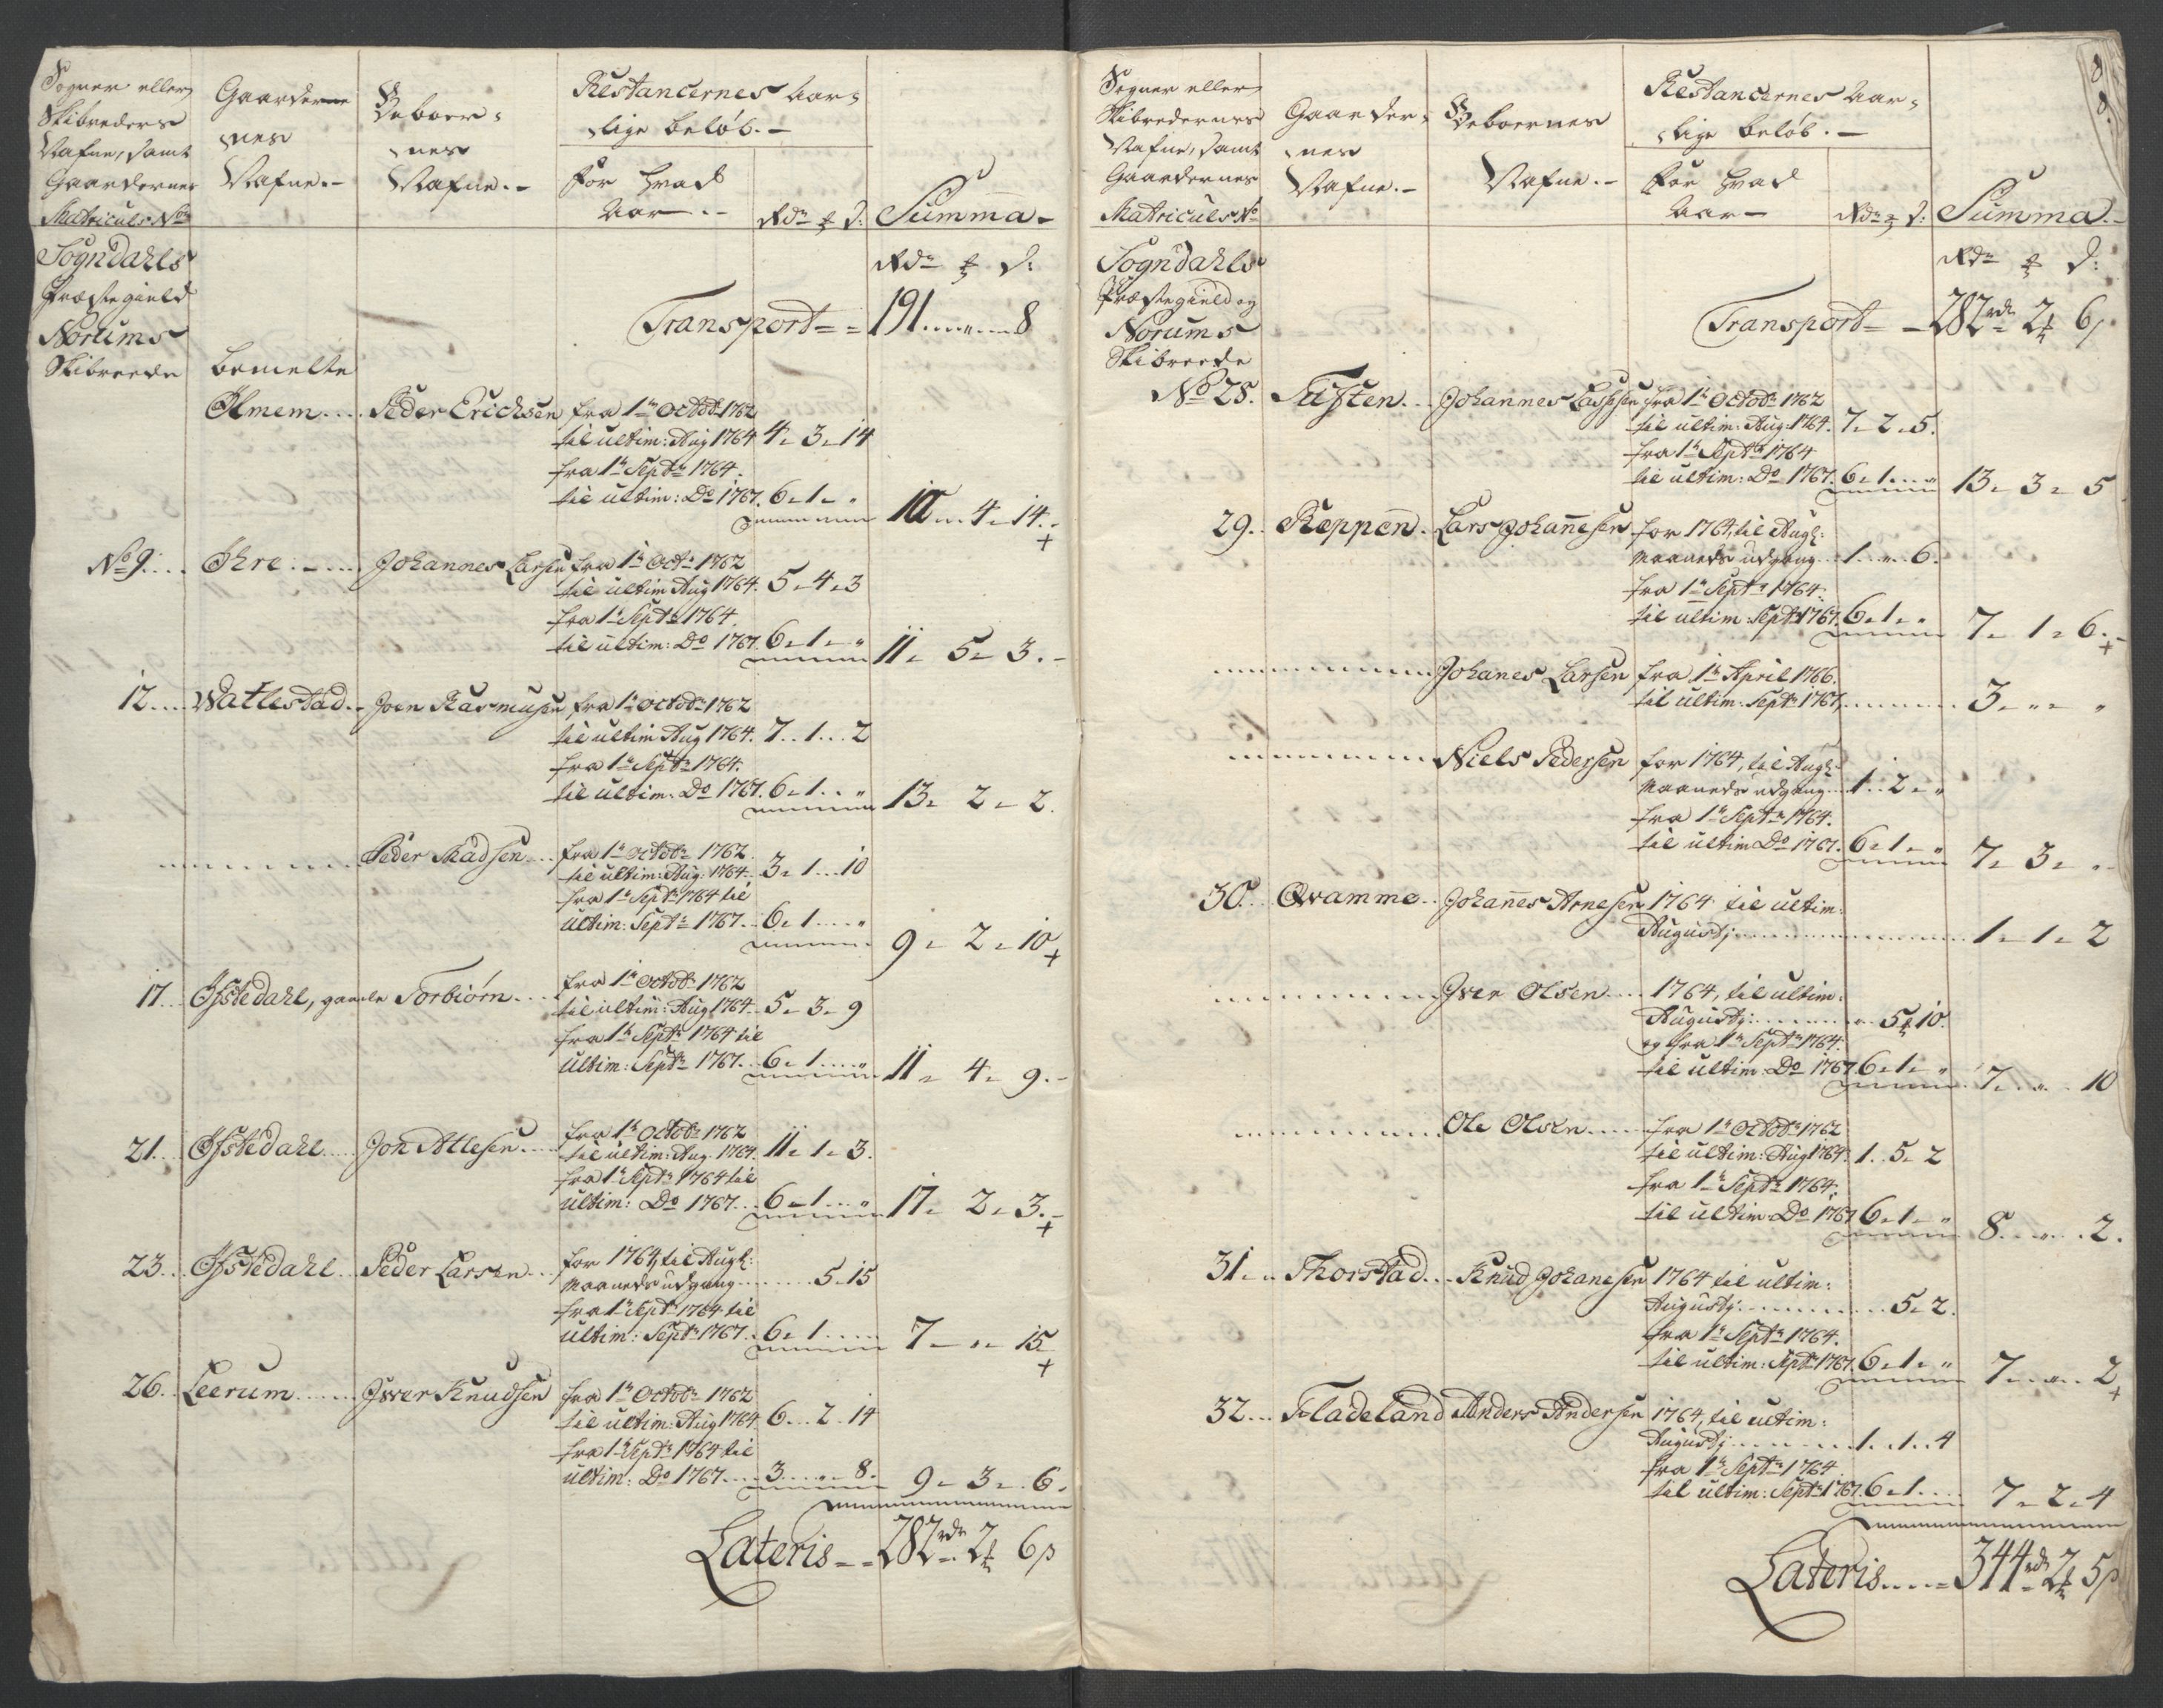 Sogner eller
Skibreders
Nafne, samt
Gaardernes
Matriculs No
Gaarder-
nes
Nafne.-
Beboer-
nes
Nafne.-
Restancernes Aar-
lige beløb.-
For hvad
Aar.-
Rdr ₰ s:
Summa-
Sogndahls
Præstegield
Norums
Skibreede
Rdr ₰ s:
Transport-- 191 .. " .. 8
bemelte
Ølmem.... Peder Erichsen fra 1te Octobr 1762
til ultim: Aug 1764 4 - 3 - 14
fra 1te Septr 1764.
til ultim: Do 1767. 6 - 1 - " 10 .. 4 - 14.-
No 9.... Øhre.-.... Johannes Larsen fra 1te Octr 1762
til ultim Aug 1764. 5 - 4 - 3
fra 1te Septr 1764.
til ultim: Do 1767. 6 - 1 - " 11 - 5 - 3.-
12.... Watlestad.. Joen Rasmusen fra 1te Octobr 1762
til ultim Aug 1764. 7 .. 1 .. 2
fra 1te Septr 1764.
til ultim: Do 1767. 6 - 1 .. " 13 - 2 - 2.
Peder Madsen... fra 1te Octobr 1762
til ultim: Aug: 1764. 3 - 1 .. 10
fra 1te Septr 1764 til
ultim: Septr 1767.. 6 - 1 .... " 9 - 2 - 10 +
17... Øfstedahl, gamle Torbiørn.... fra 1te Octobr 1762
til ultim: Aug 1764. 5 - 3 - 9
fra 1te Septr 1764 til
ultim: Septr 1767.. 6 - 1 .... " 11 - 4 - 9.-
21.... Øfstedahl.... Jon Atlesen.... fra 1te Octobr 1762
til ultim: Aug. 1764. 11 - 1 - 3.
fra 1te Septr 1764 til
ultim: Do 1767... 6 - 1 ... " 17 - 2 - 3.-
+
23... Øfstedahl.. Peder Larsen... for 1764, til Augs:
Maaneds udgang....... 5 - 15
fra 1te Septr 1764 til
ultim: Septr 1767.. 6 - 1 .... 7 - " - 15
+
26.. Leerum...... Iwer Knudsen fra 1te Octobr 1762
til ultim: Aug 1764. 6 ... 2 - 14
fra 1te Septr 1764 til
ultim: Do 1767.... 3 .. " .. 8. 9 - 3 - 6.
Lateris-- 282 rdr 2 ₰ 6 s
8
8.
Sogner eller
Skibredernes
Nafne, samt
Gaardernes
Matriculs No
Gaarder-
nes
Nafne.-
Beboernes
Nafne.-
Restancernes Aar-
lige beløb.-
For hvad
Aar-
Rdr ₰ s:
Summa.-
Sogndahls
Præstegield og
Norums
Skibreede
Rdr ₰ s:
Transport-- 282 rdr 2 ₰ 6 s
No 28. Tusten.. Johannes Lassesen fra 1te Octobr 1762
til ultim: Aug: 1764. 7 - 2 - 5.
fra 1te Septr 1764
til ultim: Do 1767. 6 - 1 ... " 13 - 3 - 5
29.. Keppen.. Lars Johannesen for 1764, til Augs:
Maaneds udgang... 1 .. " .. 6.
fra 1te Septr 1764.
til ultim: Septr 1767. 6 - 1 - " 7 - 1 - 6.-
+
Johanes Larsen fra 1te April 1766.
til ultim: Septr 1767........ 3 - " - "
Niels Pedersen for 1764, til Augs:
Maaneds udgang... 1 .. 2 - "
fra 1te Septr 1764.
til ultim Do 1767. 6 - 1 - " 7 - 3 - "
30... Qvamme.. Johanes Arnesen 1764 til ultim:
Augustj................ 1 - 1 - 2
Iver Olsen.... 1764, til ultim:
Augustj:........ " .. 5 ₰ 10.
og fra 1te Septr 1764.
til ultim: Do 1767 6 - 1 - " 7 .. " .. 10
Ole Olsen..... fra 1te Octobr 1762
til ultim: Aug 1764. 1 .. 5 - 2
fra 1te Septr 1764.
til ultim: Do 1767 6 - 1 - " 8 ... " ... 2.
31... Thorstad... Knud Johanesen 1764 til ultim:
Augustj............. 5 - 2.
fra 1te Septr 1764.
til ultim: Septr 1767. 6 - 1 - " 7 .. " .. 2
+
32... Fladeland Anders Andersen 1764, til ultim:
Augustj........... 1 .. 1 .. 4
fra 1te Septr 1764
til ultim: Septr 1767. 6 - 1 .... 7 - 2 - 4
Lateris..... 344 rdr 2 ₰ 5 s